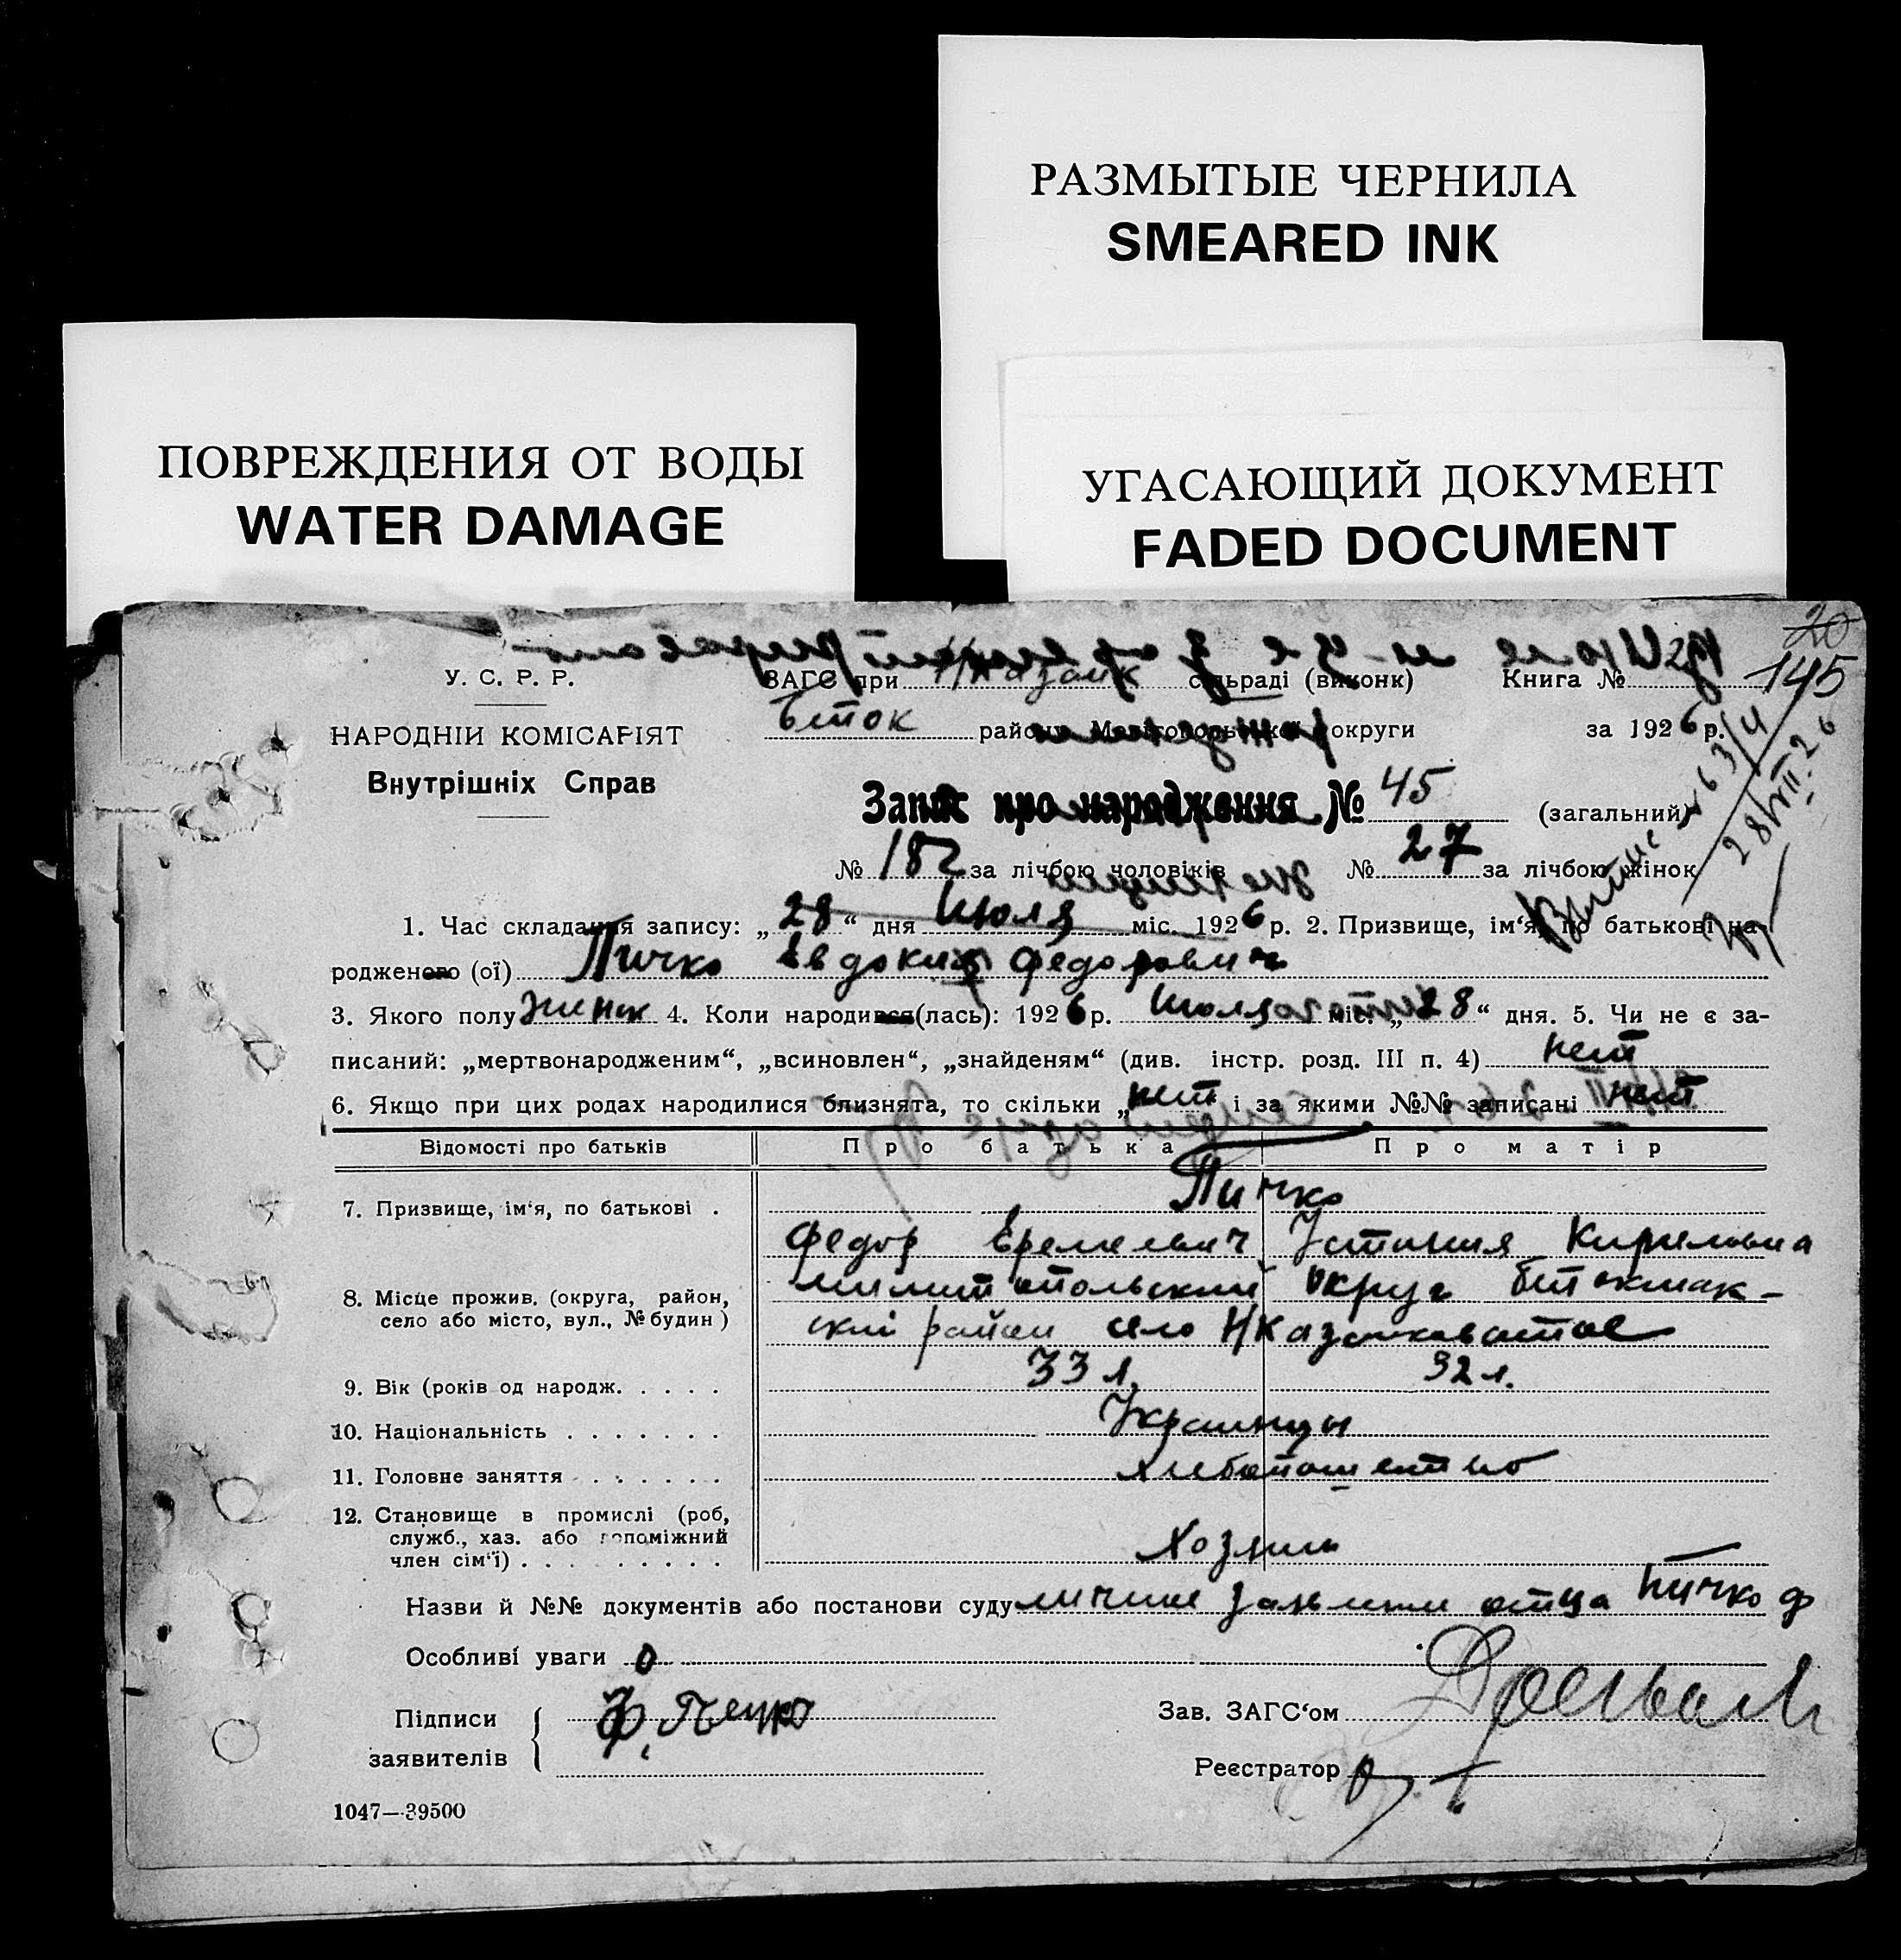 РАЗМЫТЫЕ ЧЕРНИЛА
SMEARED INK
ПОВРЕЖДЕНИЯ ОТ ВОДЫ
WATER DAMAGE
УГАСАЮЩИЙ ДОКУМЕНТ
FADED DOCUMENT
20
145
У. С. Р. Р.
НАРОДНІЙ КОМІСАРІЯТ
Внутрішніх Справ
ЗАГС при Н/Казанк сільраді (виконк) Книга №
Бток району Мелітопольської округи за 1926 р.
Запис про народження № 45 (загальний)
№ 182 за лічбою чоловіків № 27 за лічбою жінок
28/VII 26
1. Час складання запису: „28“ дня Июля міс. 1926 р. 2. Призвище, ім‘я, по батькові на-
родженого (ої) Пичко Евдокия Федорович
3. Якого полу жинок 4. Коли народився(лась): 1926 р. Июля міс. „28“ дня. 5. Чи не є за-
писаний: „мертвонародженим“, „всиновлен“, „знайденям“ (див. інстр. розд. III п. 4) нет
6. Якщо при цих родах народилися близнята, то скільки „нет і за якими №№ записані нет
Відомості про батьків Про батька Про матір
7. Призвище, ім‘я, по батькові . Пичко
Федор Еремеевич Устиния Кириловна
8. Місце прожив. (округа, район, село або місто, вул., № будин) Милитопольский округ Бтокмак-
ский район село Н/Казанковатое
9. Вік (років од народж. . . . . 33 л. 32 л.
10. Національність . . . . . . . Украинцы
11. Головне заняття . . . . . . Хлебопашество
12. Становище в промислі (роб,
служб., хаз. або допоміжний
член сім‘ї) . . . . . . . . . Хозяин
Назви й №№ документів або постанови суду личное заявление отца Пичко Ф
Особливі уваги 0
Підписи
заявителів
Ф. Печко
Зав. ЗАГС‘ом
Реєстратор
1047—39500